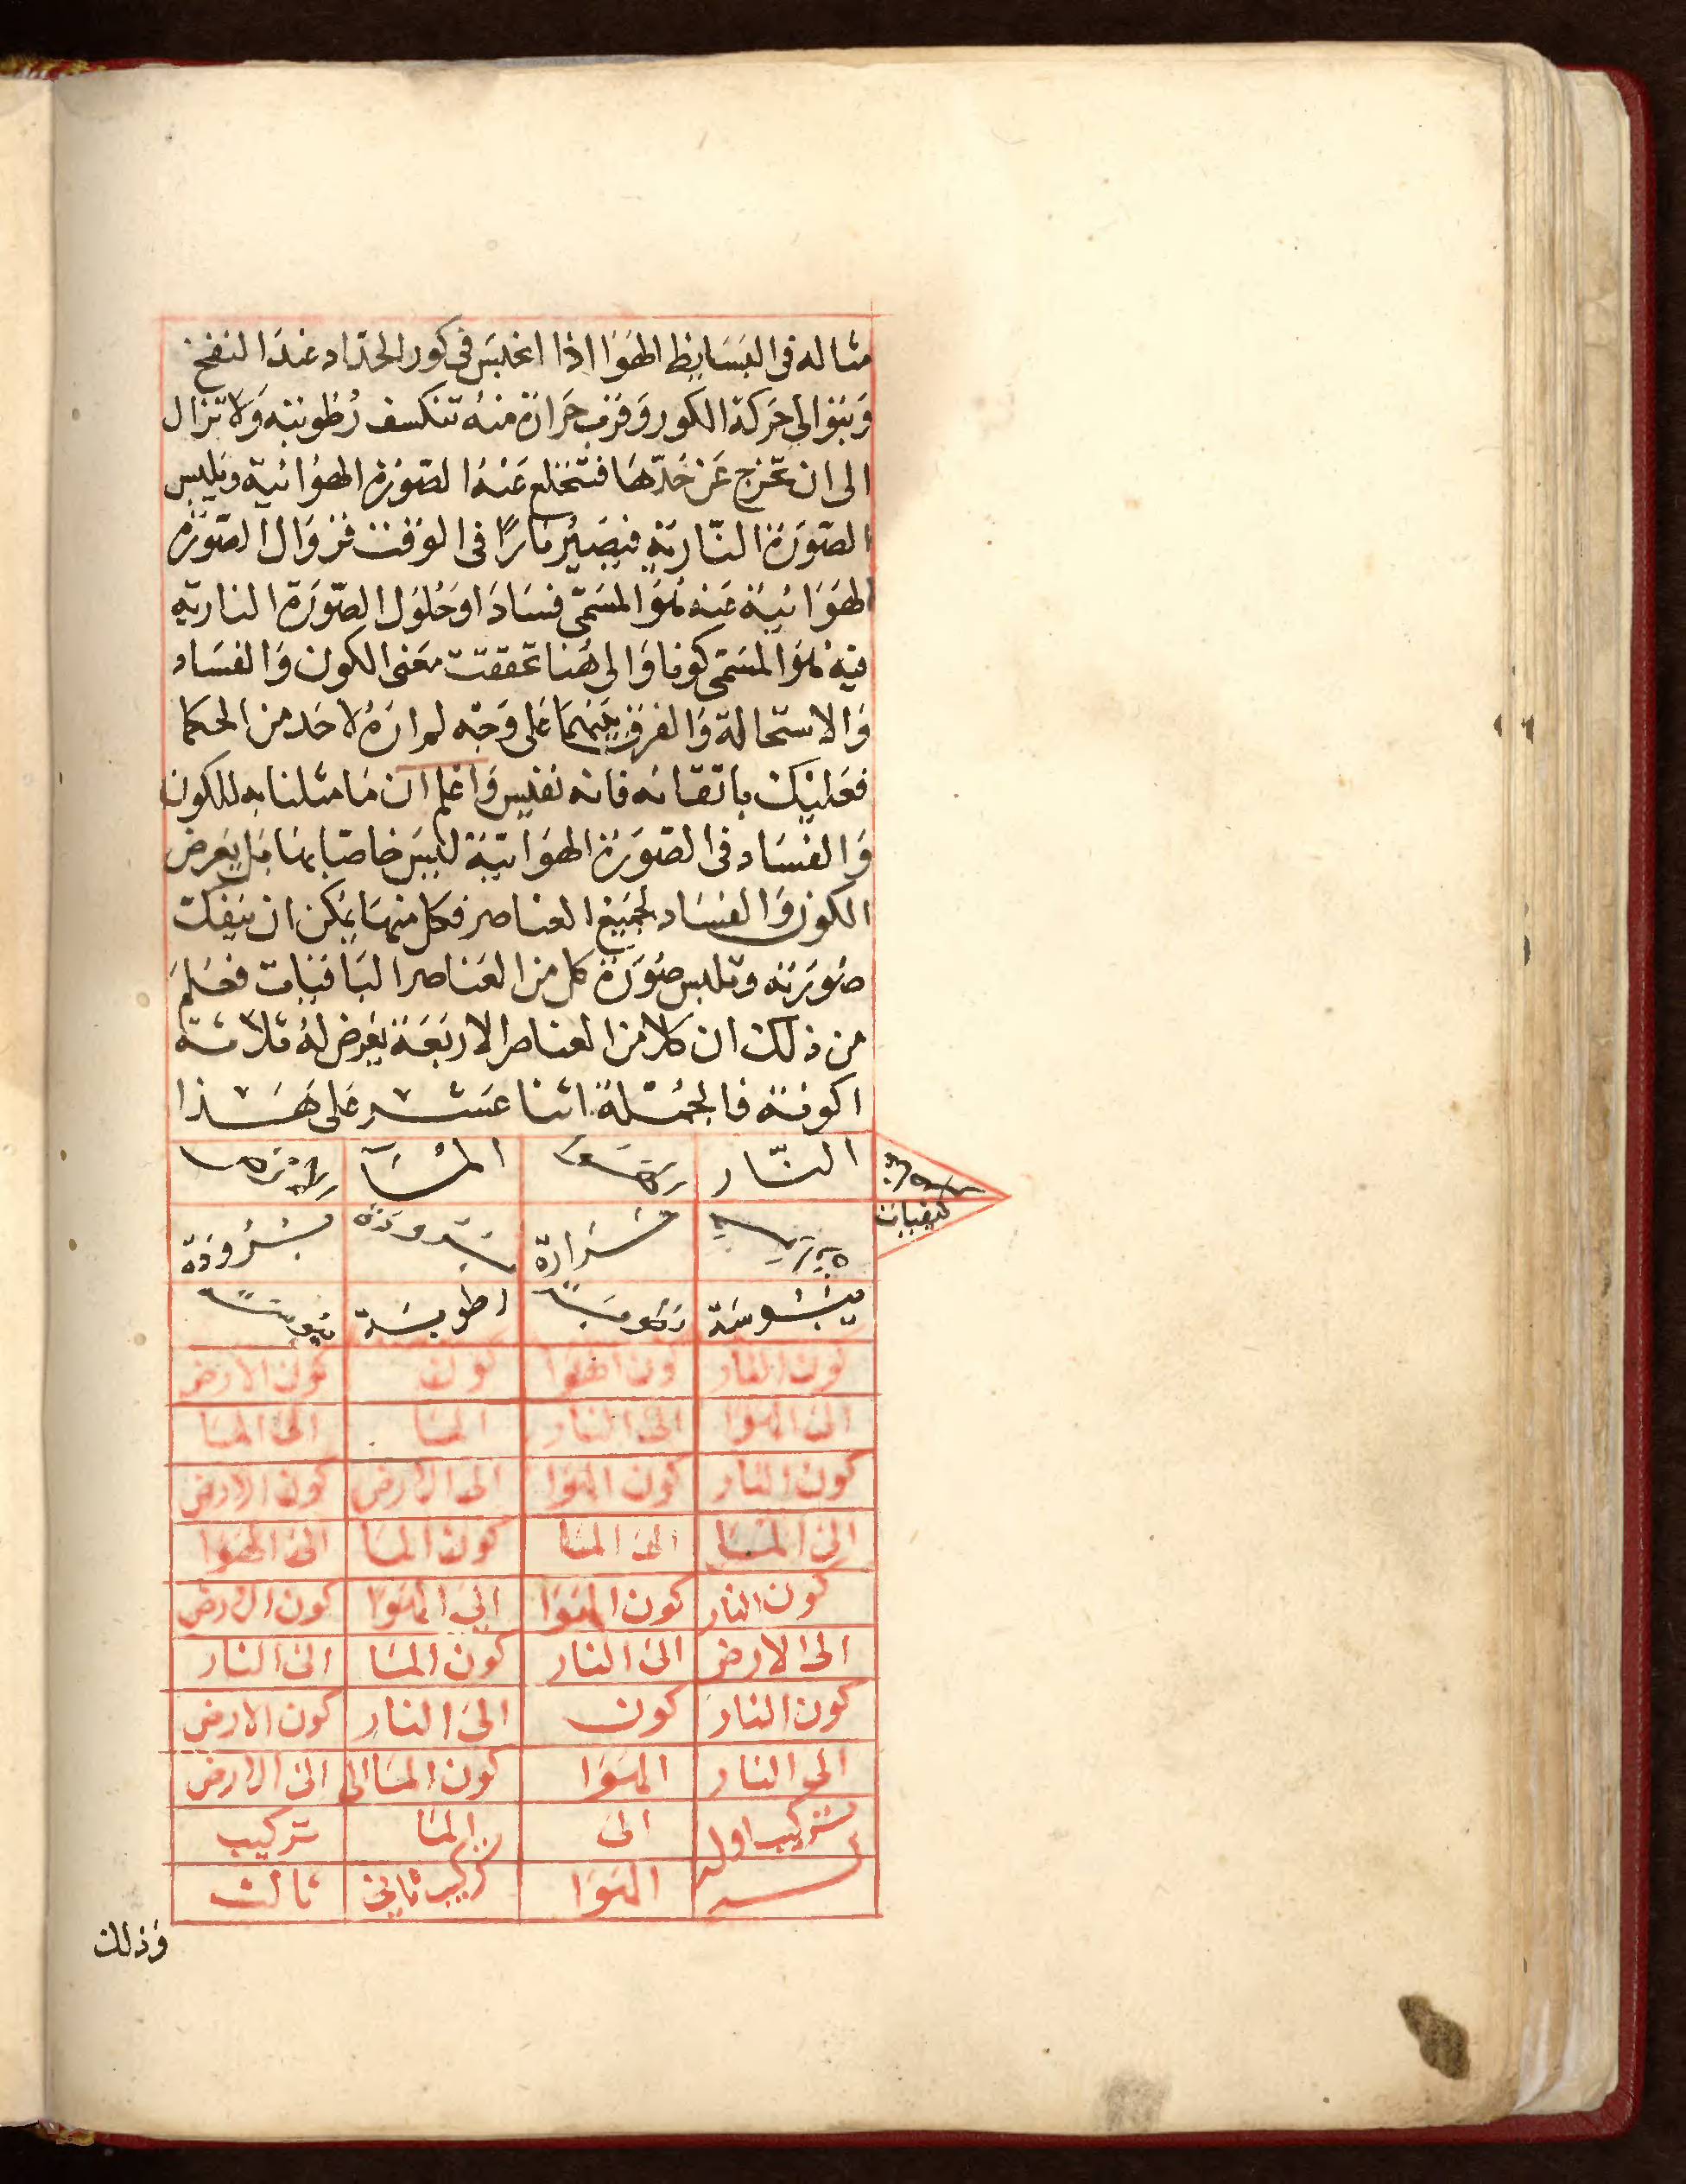 مثاله فى البسايط الهوا اذا انحبس فى كور الحداد عند النفخ
وبتوالى حركة الكور وقرب حرارة منه تنكسف رطوبته ولا تزال
الى ان تخرج عن حدها فتنخلع عنه الصورة الهوائية ويلبس
الصورة النارية فيصير نارا فى الوقت فزوال الصورة
الهوائية عنه هو المسمى فسادا وحلول الصورة النارية
فيه هو المسمى كونا والى هنا تحققت معنى الكون والفساد
والاستحالة والفرق بينهما على وجه لم اره لاحد من الحكما
فعليك باتقانه فانه نفيس واعلم ان ما مثلنا به للكون
والفساد فى الصورة الهوائية ليس خاصا بها بل يعرض
الكون والفساد لجميع العناصر فكل منها يمكن ان ينفك
صورته وتلبس صورة كل من العناصر الباقيات فعلم
من ذلك ان كلا من العناصر الاربعة يعرض له ثلاثة
اكونة فالجملة اثنا عشر على هذا
النار المآ
كيفيات حرارة برودة برودة
يبوسة رطوبة يبوسة
كون النار كون الهوا كون كون الارض
الى الهوا الى النار المآ الى المآ
كون النار كون الهوا الى الارض كون الارض
الى المآ الى المآ كون المآ الى الهوا
كون النار كون الهوا الى الهوا كون الارض
الى الارض الى النار كون المآ الى النار
كون النار كون الى النار كون الارض
الى النار الهوا كون المآ الى الى الارض
تركيب اول الى المآ تركيب
الهوا تركيب ثانى ثالث
وذلك